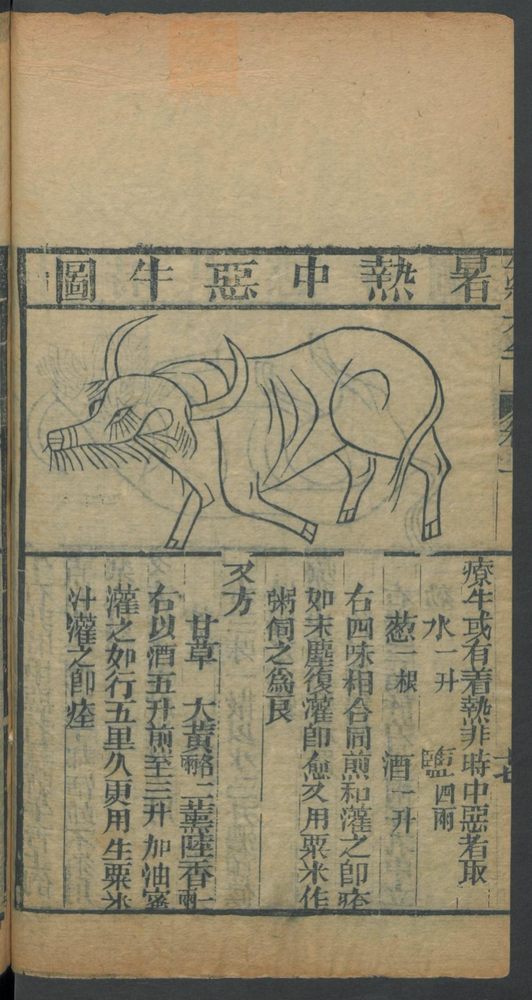 暑熱中惡牛圖
療牛或有着熱非時中惡者取
水一升 鹽四兩
葱一根 酒一升
右四味相合同煎和灌之卽痊
如未塵復灌卽愈又用粟米作
粥飼之爲良
又方
甘草 大黃 各二兩 薰陸香 一兩
右以酒五升煎至三升加油蜜
灌之如行五里久更用生粟米
汁灌之卽痊